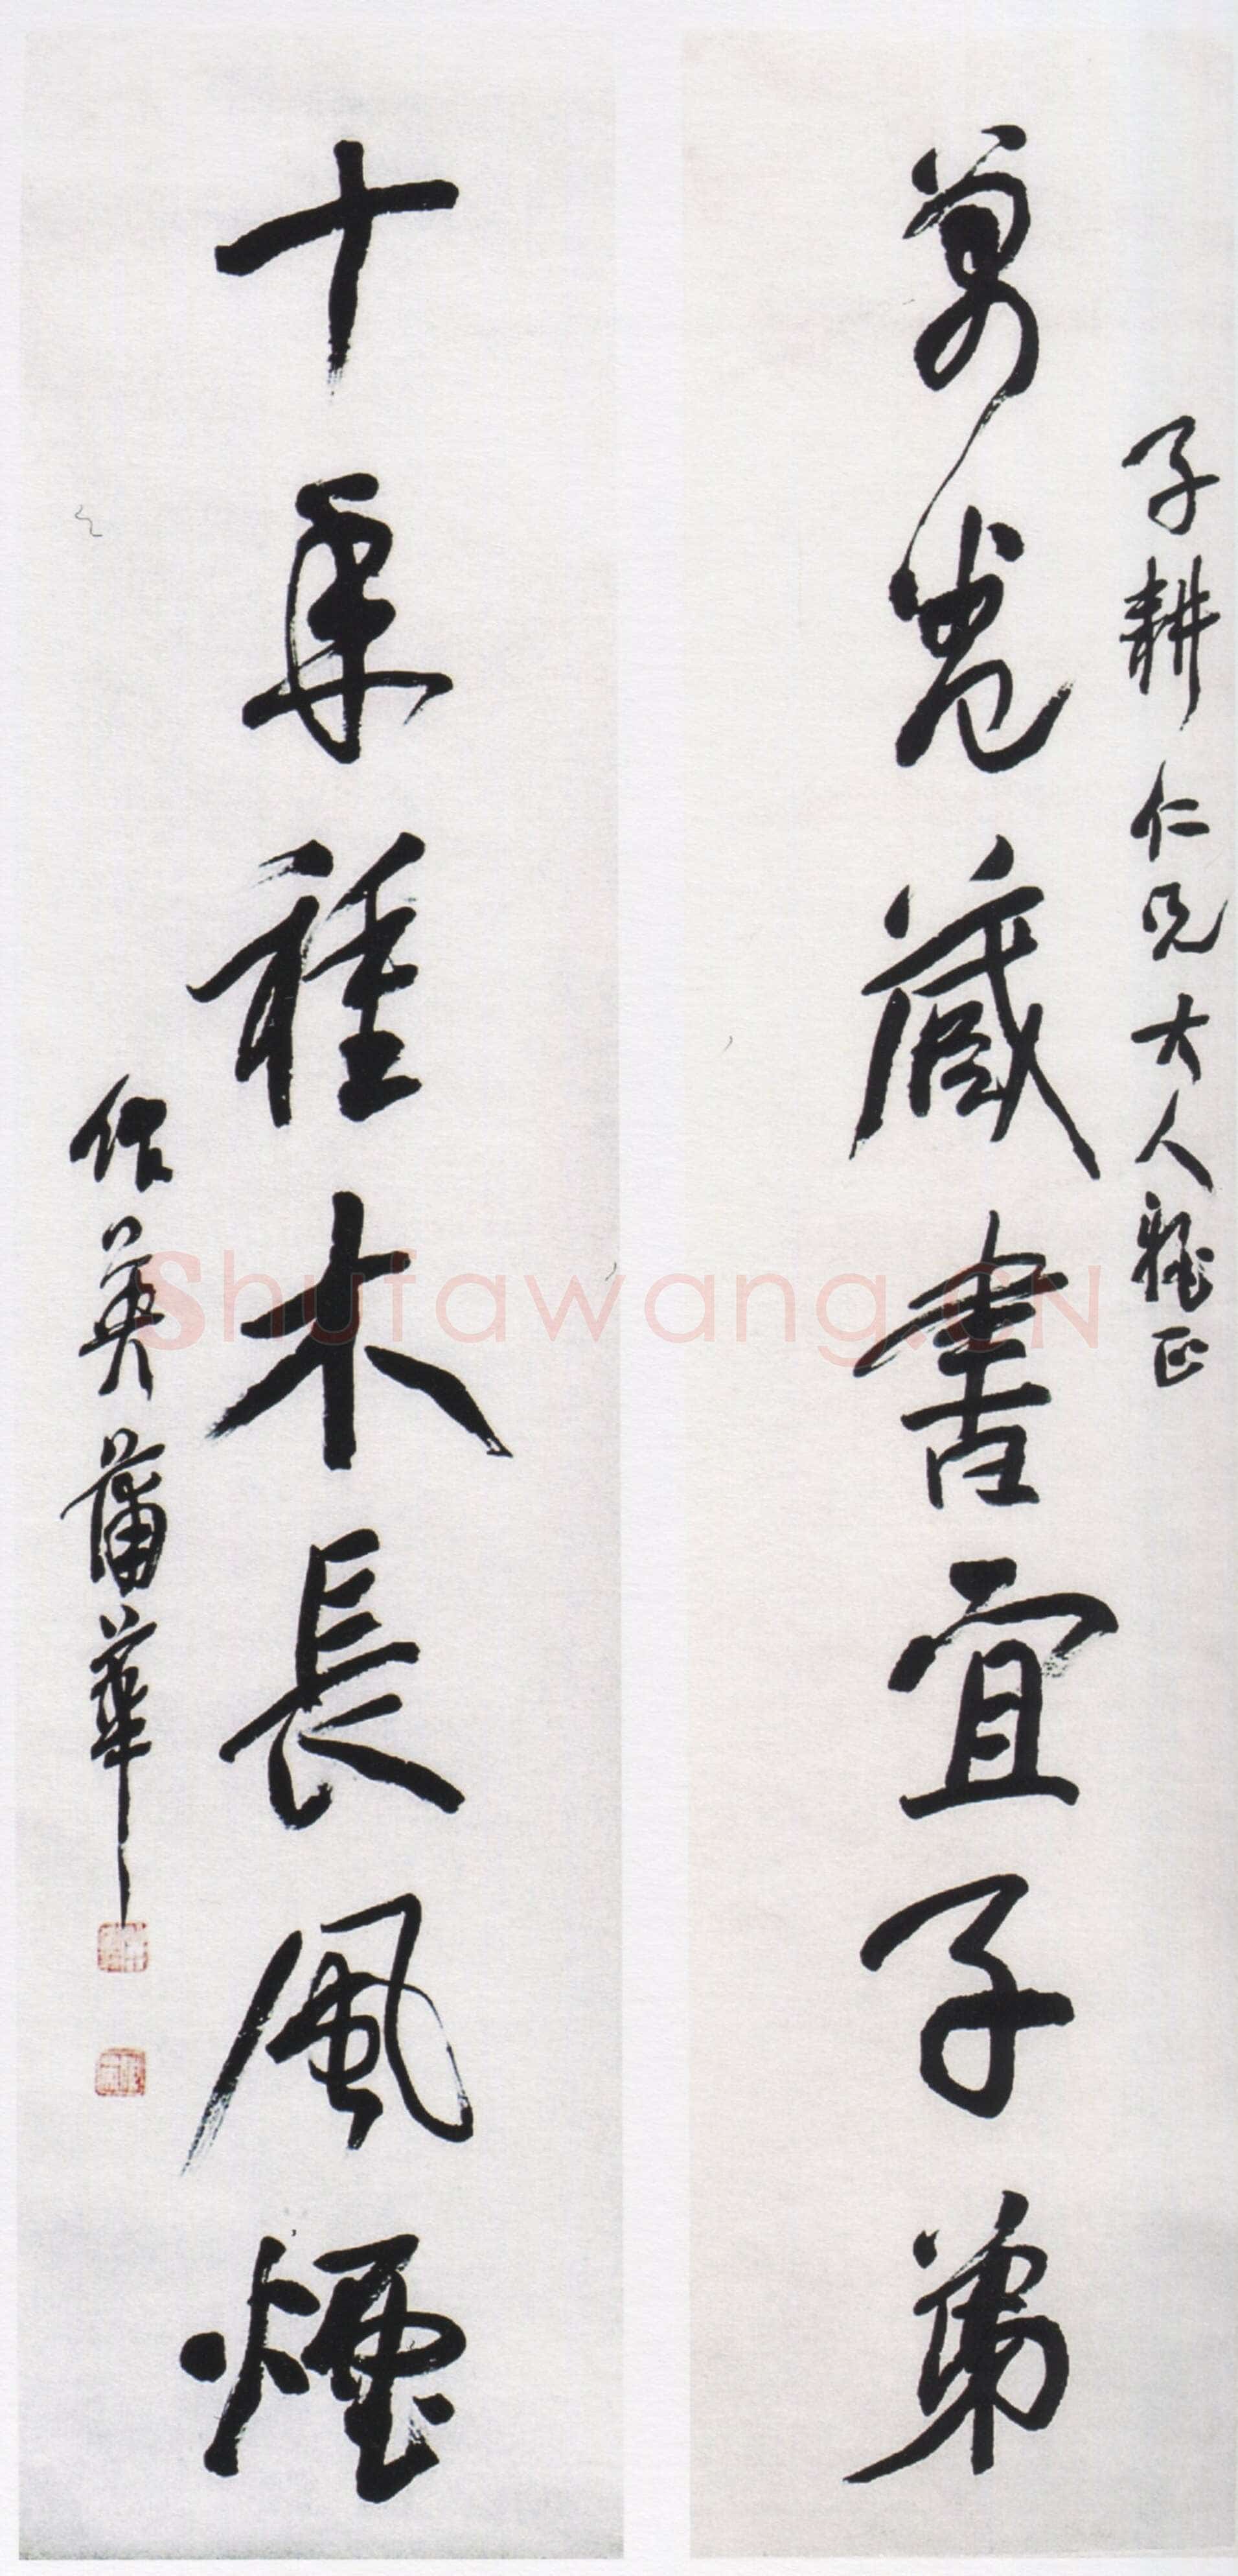 子耕仁兄大人雅正
萬卷藏書宜子弟
十年種木長風煙
作英蒲華
Shufawang.CN